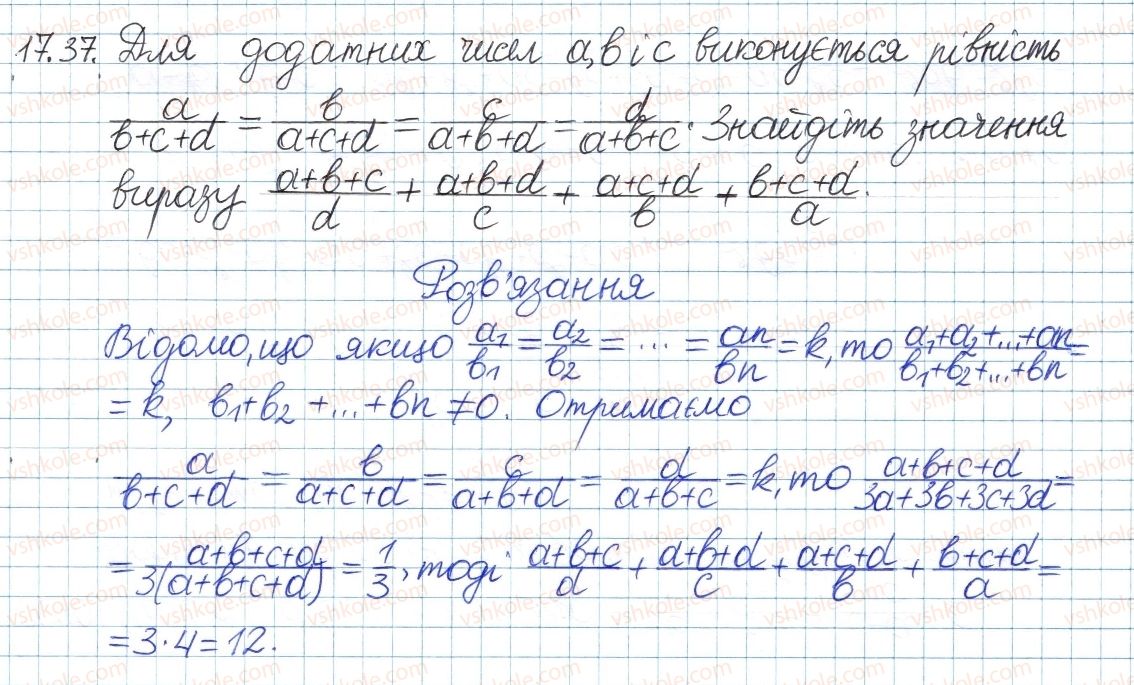 17.37. Для додатних чисел a,b і c виконується рівність
a/(b+c+d) = b/(a+c+d) = c/(a+b+d) = d/(a+b+c). Знайдіть значення
виразу (a+b+c)/d + (a+b+d)/c + (a+c+d)/b + (b+c+d)/a.
Розв'язання
Відомо, що якщо a₁/b₁ = a₂/b₂ = ... = an/bn = k, то (a₁+a₂+...+an)/(b₁+b₂+...+bn) =
= k, b₁+b₂+...+bn ≠ 0. Отримаємо
a/(b+c+d) = b/(a+c+d) = c/(a+b+d) = d/(a+b+c) = k, то (a+b+c+d)/(3a+3b+3c+3d) =
= (a+b+c+d)/(3(a+b+c+d)) = 1/3, тоді (a+b+c)/d + (a+b+d)/c + (a+c+d)/b + (b+c+d)/a =
= 3·4 = 12.